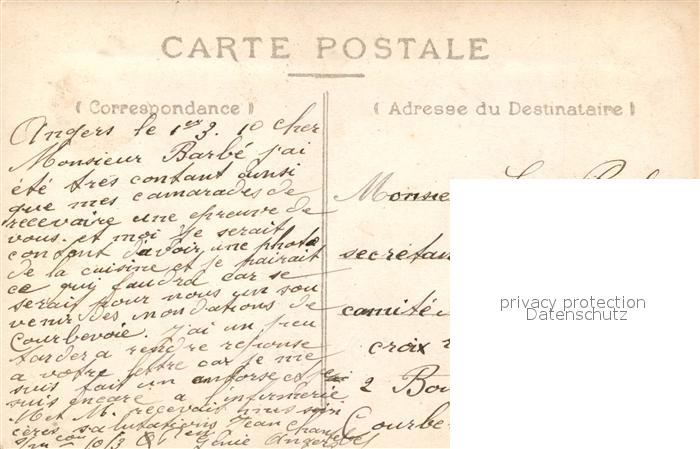 CARTE POSTALE
( Correspondance )
( Adresse du Destinataire )
Angers le 1er 3. 10 cher
Monsieur Barbé j'ai
été très contant ainsi
que mes camarades de
recevaire une epreuve de
vous. et moi je serait
contant d'avoir une photo
de la cuisine et je pairait
ce qui faudra car se
serait pour nous un sou
venir des inondations de
Courbevoie. j'ai un peu
tarder a rendre reponse
a votre lettre car je me
suis fait un entorse et je
suis encore a l'infirmerie
M et M. recevait mes sin
cères salutations Jean
10/3
Génie Angers
Monsie
secrétai
camité
croix
2 Bo
Courbe
privacy protection
Datenschutz